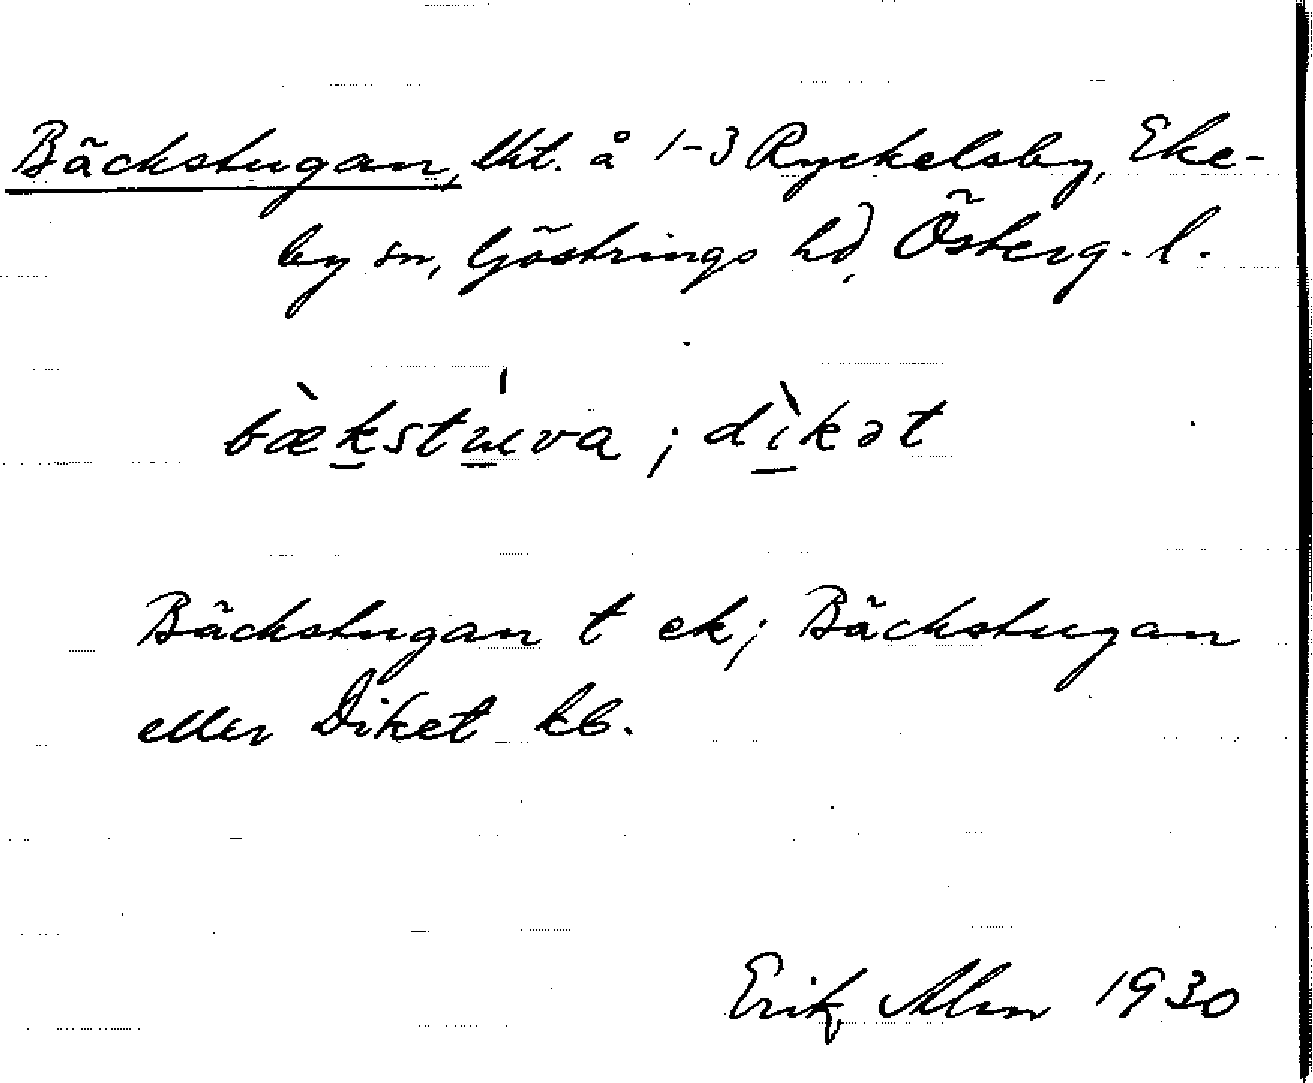 Bäckstugan, lht. å 1-3 Ryckelsby, Eke-
by sn, Göstrings hd, Österg. l.
bæ̀kstúva ; dìkət
Bäckstugan t ek; Bäckstugan
eller Diket kb.
Erik Alm 1930